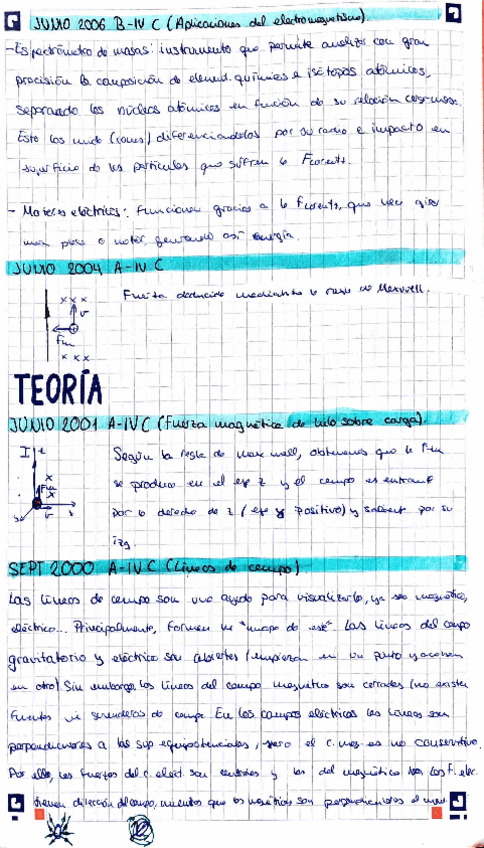 JUNIO 2006 B-IV C (Aplicaciones del electromagnetismo).
-Espectrómetro de masas: instrumento que permite analizar con gran
precisión la composición de element. químicos e isótopos atómicos,
separando los núcleos atómicos en función de su relación carga-masa.
Este los (iones) diferenciándolos por su radio e impacto en
superficie de las partículas que sufren la Florentz.
- Motores eléctricos: Funcionan gracias a la Florentz, que hace girar
una el motor generando así energía.
JUNIO 2004 A-IV C
x x x
Fuerza deducida mediante la regla de Maxwell.
v
Fm
x x x
TEORÍA
JUNIO 2001 A-IV C (Fuerza magnética de hilo sobre carga).
I
Según la regla de Maxwell, obtenemos que la Fm
se produce en el eje z y el campo es entrante
por la derecha de z (eje y positivo) y saliente por su
izq.
SEPT 2000 A-IV C (Líneas de campo)
Las líneas de campo son una ayuda para visualizarlo, ya sea magnético,
eléctrico... Principalmente, forman un "mapa de este". Las líneas del campo
gravitatorio y eléctrico son abiertas (empiezan en un punto y acaban
en otro). Sin embargo, las líneas del campo magnético son cerradas (no existen
fuentes ni sumideros de campo. En los campos eléctricos las líneas son
perpendiculares a las sup equipotenciales, pero el c. mag. es no conservativo.
Por ello, las fuerzas del c. eléct. son centrales y las del magnético no. Las f. eléc.
tienen dirección del campo, mientras que las magnéticas son perpendiculares al mismo.